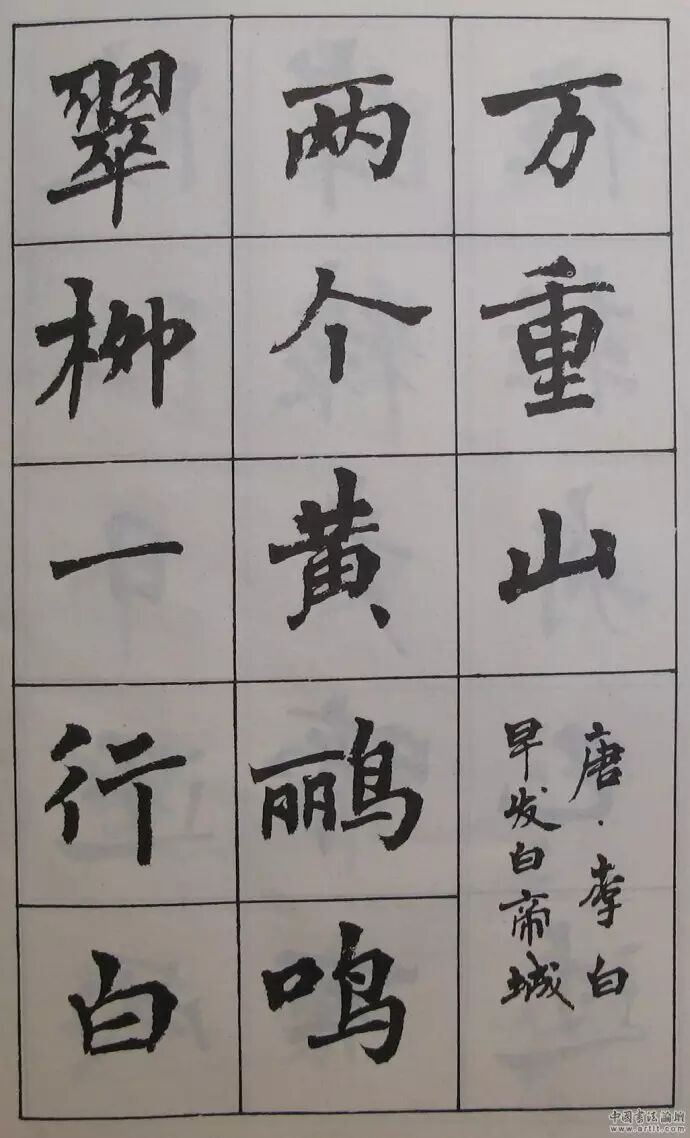 万重山
唐·李白
早发白帝城
两个黄鹂鸣
翠柳一行白
中国书法论坛
www.artit.com